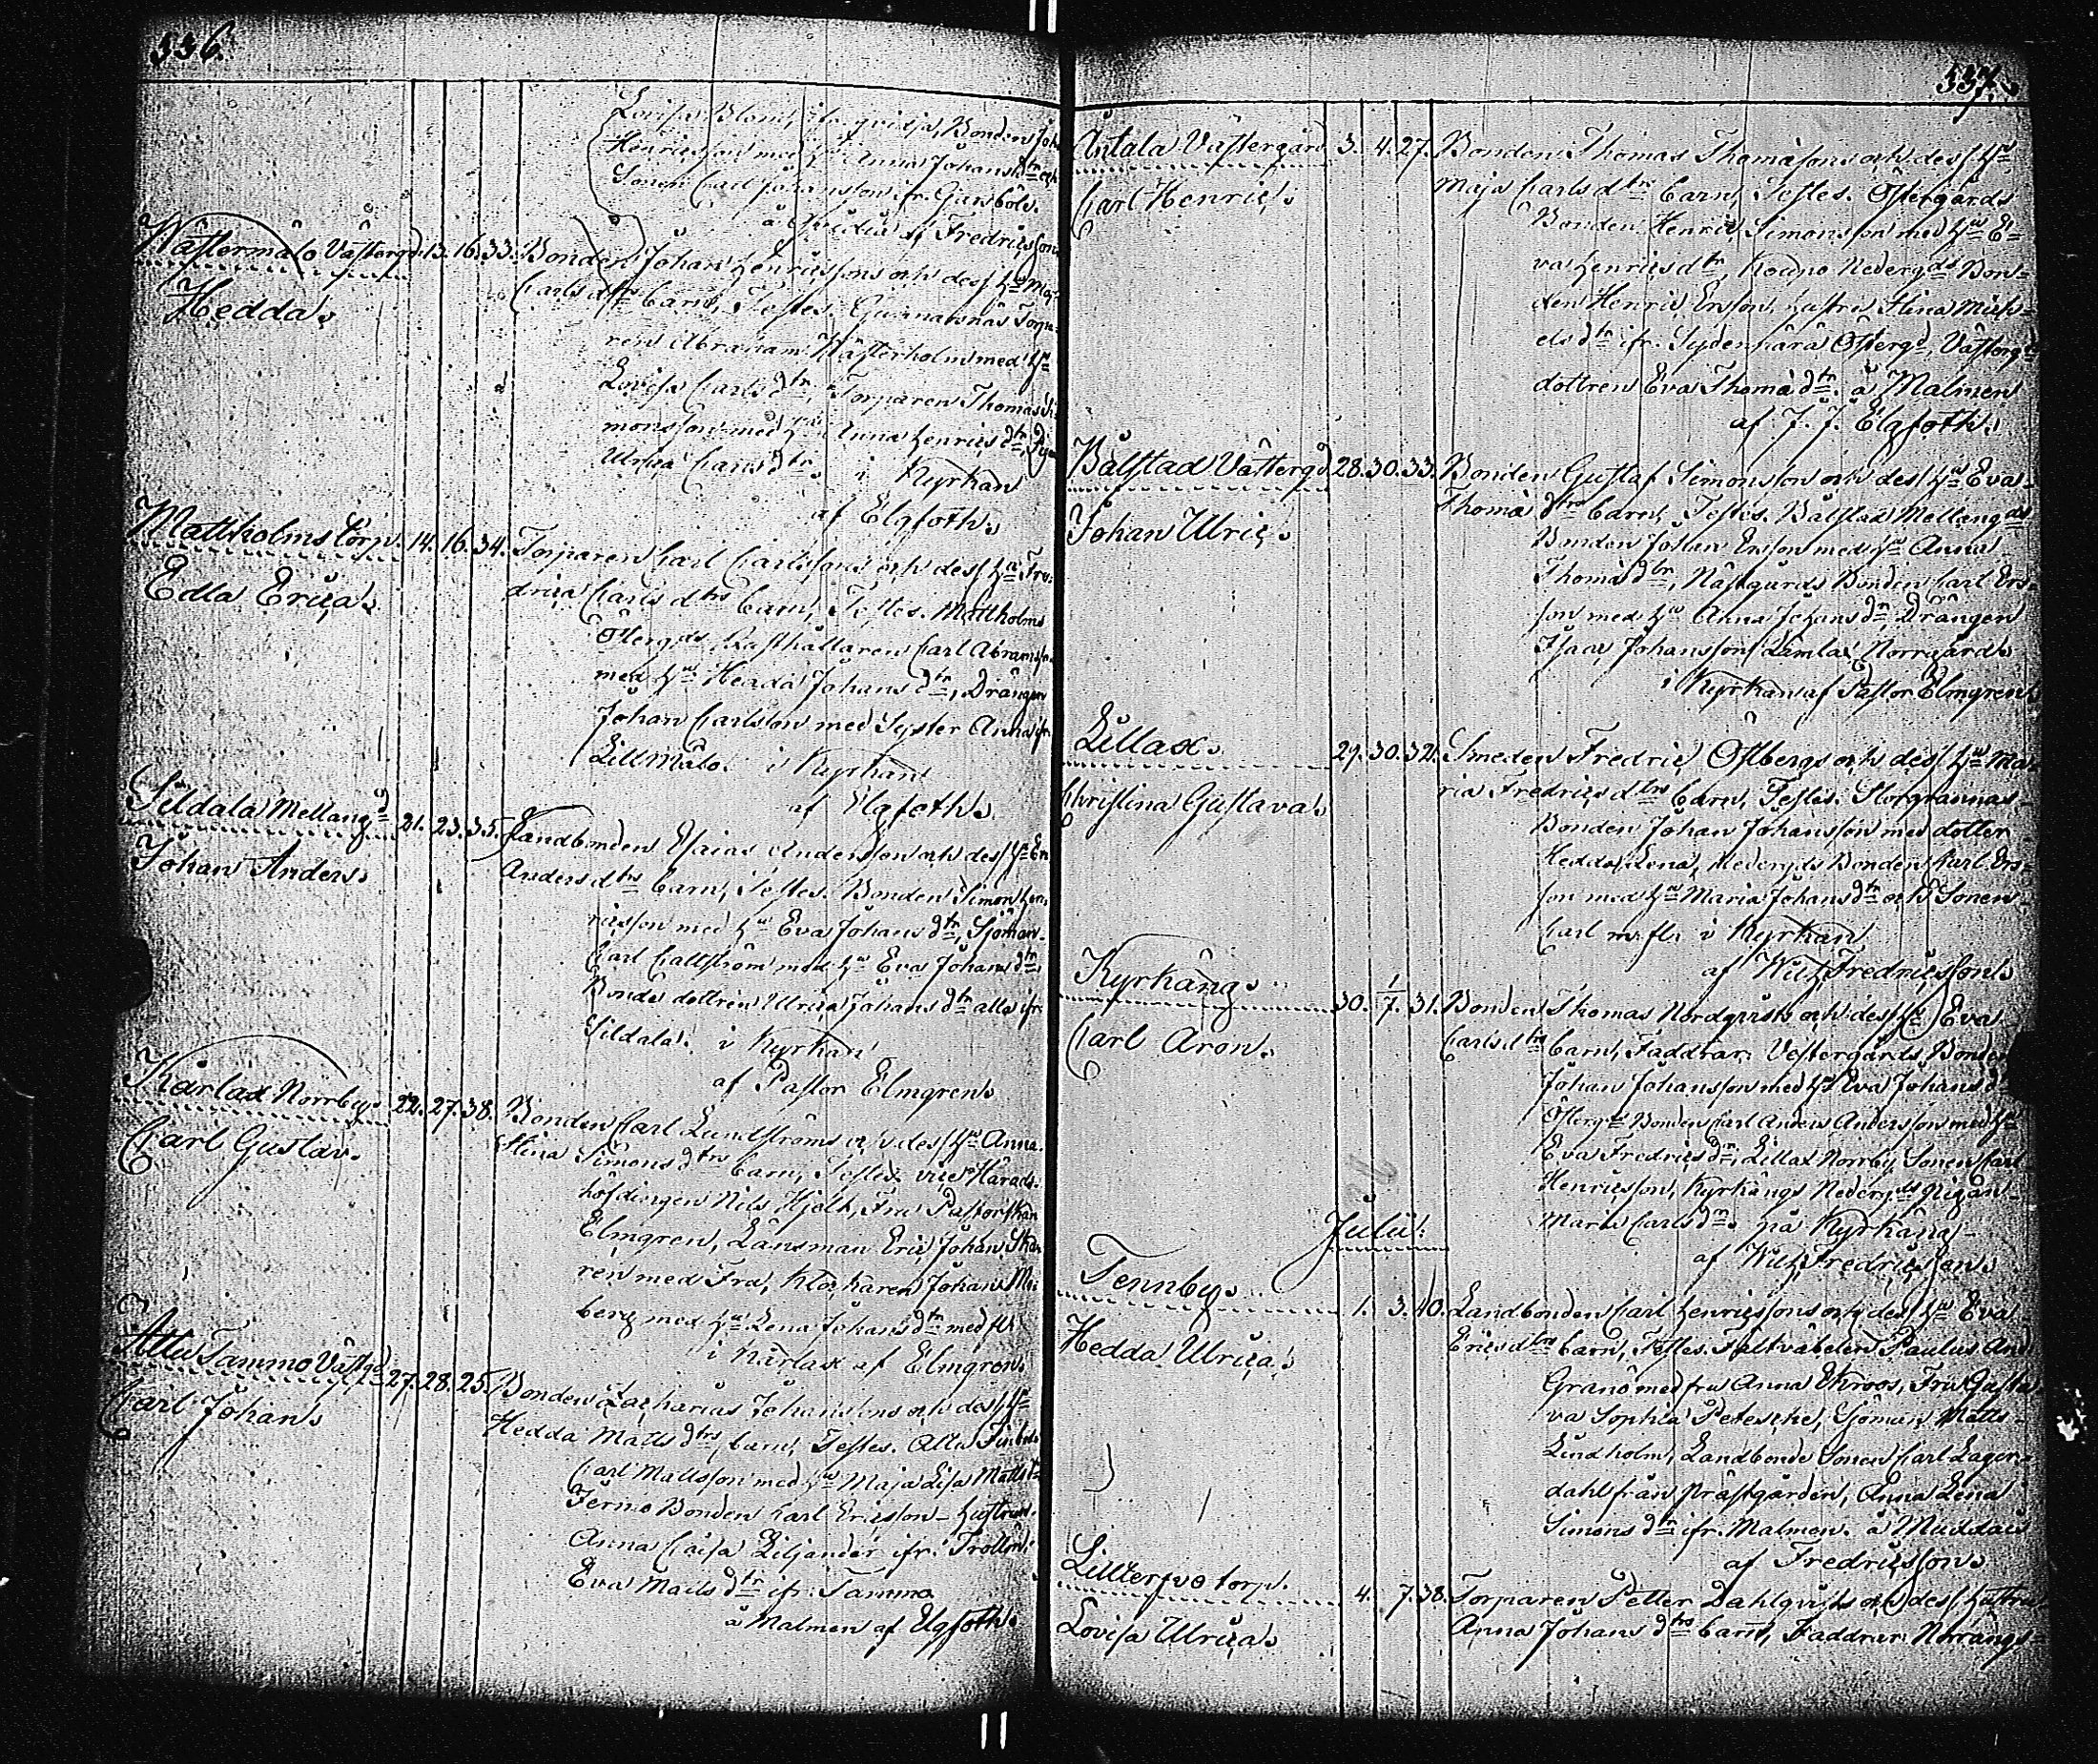 336.
Lovisa Blom, Bonden Joh.
Henricsson med h:u Anna Johans d:tr och
Sonen Carl Johansson ifr. Garsböle.
af Fredricsson
Wästermålö Västergd 13. 16. 33. Bonden Johan Henricssons och dess h:u Maj
Hedda.
Carls d:trs barn, Testes. Gunnarsnäs Torpa-
ren Abraham Wästerholm med h:u
Lovisa Carls d:tr, Torparen Thomas Si-
monsson med h:u Anna Henrics d:tr, Pig.
Ulrica Carls d:tr. i Kyrkan
af Elgfoth.
Mattholms torp. 14. 16. 34. Torparen Carl Carlssons och dess h:u Fre-
Edla Erica.
drica Carls d:trs barn, Testes. Mattholms
Östergds Rusthållaren Carl Abramss.
med h:u Hedda Johans d:tr, Drängen
Johan Carlsson med Syster Anna ifr.
Lillmålö. i Kyrkan
af Elgfoth.
Sildala Mellangd 21. 23. 35. Landbonden Esaias Andersson och dess h:u Ev.
Johan Anders.
Anders d:trs barn, Testes. Bonden Simon Hen-
ricsson med h:u Eva Johans d:tr, Sjöman-
Carl Callström med h:u Eva Johans d:tr
Bonde dottren Ulrica Johans d:tr alla ifr.
Sildala. i Kyrkan
af Pastor Elmgren.
Kärlax Norrby. 22. 27. 38. Bonden Carl Lundströms och dess h:u Anna
Carl Gustav.
Stina Simons d:trs barn, Testes. vice Härads-
höfdingen Nils Hjelt, Fru Pastorskan
Elmgren, Länsman Eric Johan Ska-
ren med Fru, Klockaren Johan Mo-
berg med h:u Lena Johans d:tr med fl.
i Kärlax af Elmgren.
Attu Jammo Västgd 27. 28. 25. Bonden Zacharias Johanssons och dess h:u
Carl Johan.
Hedda Matts d:trs barn, Testes. Attu
Carl Mattsson med h:u Maja Lisa Matts d:tr
Jermo Bonden Karl Ericsson hustrun
Anna Caisa Liljander ifr. Trollön.
Eva Matts d:tr ifr. Jammo
å Malmen af Elgfoth.
337.
Antala Västergård 3. 4. 27. Bonden Thomas Thomassons och dess h:u
Carl Henric.
Maja Carls d:trs barn, Testes. Östergårds
Bonden Henric Simonsson med h:u E-
va Henrics d:tr, Kouno Nedergds Bon-
den Henric Ersson, hustru Stina Mich-
els d:tr ifr. Sydenkärä Östergd, Västergds
dottren Eva Thomæ d:tr. å Malmen
af J. J. Elgfoth.
Bålstad Västergd 28. 30. 33. Bonden Gustaf Simonsson och dess h:u Eva
Johan Ulric.
Thomæ d:trs barn, Testes. Bålstad Mellangds
Bonden Johan Ersson med h:u Anna
Thomæ d:tr, Nästgårds Bonden Carl Ers-
son med h:u Anna Johans d:tr, Drängen
Isaac Johansson Lämlax Norrgård.
i Kyrkan af Pastor Elmgren.
Lillax. 29. 30. 32. Smeden Fredric Östbergs och dess h:u Ma-
Christina Gustava.
ria Fredrics d:trs barn, Testes. Storgrannas
Bonden Johan Johansson med dotter
Hedda Lena, Nedergds Bonden Karl Ers-
son med h:u Maria Johans d:tr och Sonen
Carl m. fl. i Kyrkan
af Wilh. Fredricsson.
Kyrkäng. 30. 1/7. 31. Bonden Thomas Nordqvists och dess h:u Eva
Carl Aron.
Carls d:trs barn, Faddrar. Vestergårds Bonden
Johan Johansson med h:u Eva Johans d
Östergds Bonden Carl Anders Andersson med h:u
Eva Fredrics d:tr, Lillax Norrby Sonen Carl
Henricsson, Kyrkängs Nedergds Pigan
Maria Carls d:tr. på Kyrkäng
af Wilh. Fredricsson.
Julii.
Tennby. 1. 3. 40. Landbonden Carl Henricssons och dess h:u Eva
Hedda Ulrica.
Erics d:trs barn, Testes. Fältväbelen Paulus And.
Granö med fru Anna Ekroos, Fru Gusta-
va Sophia Petesche, Sjöman Matts
Lindholm, Landbonde Sonen Carl Lager-
dahl från Prästgården, Anna Lena
Simons d:tr ifr. Malmen. å Muddais
af Fredricsson.
Lilltervo torp. 4. 7. 38. Torparen Petter Dahlqvists och dess hustru
Lovisa Ulrica.
Anna Johans d:trs barn, Faddrar. Norrängs-